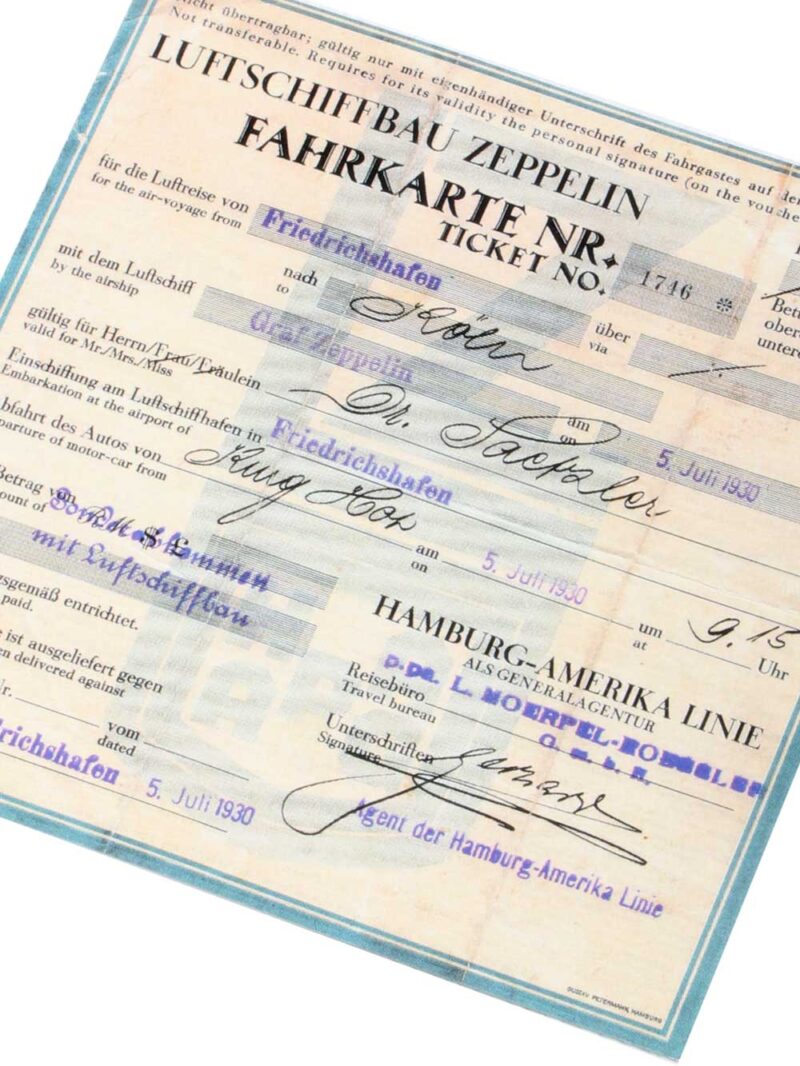 Nicht übertragbar; gültig nur mit eigenhändiger Unterschrift des Fahrgastes auf dem
Not transferable. Requires for its validity the personal signature (on the
LUFTSCHIFFBAU ZEPPELIN
FAHRKARTE NR. 1746 *
TICKET NO.
für die Luftreise von Friedrichshafen nach Köln über ·/.
for the air-voyage from to via
mit dem Luftschiff Graf Zeppelin am 5. Juli 1930
by the airship on
gültig für Herrn/Frau/Fräulein Dr.
valid for Mr./Mrs./Miss
Einschiffung am Luftschiffhafen in Friedrichshafen am 5. Juli 1930 um 9.15 Uhr
Embarkation at the airport of on at
bfahrt des Autos von
parture of motor-car from
Betrag von RM $ £
ount of
Sonderabkommen
mit Luftschiffbau
sgemäß entrichtet.
paid.
e ist ausgeliefert gegen
en delivered against
Nr. vom
dated
drichshafen 5. Juli 1930
HAMBURG-AMERIKA LINIE
ALS GENERALAGENTUR
Reisebüro
Travel bureau
G. m. b. H.
Unterschriften
Signature
Agent der Hamburg-Amerika Linie
GUSTAV PETERMANN, HAMBURG